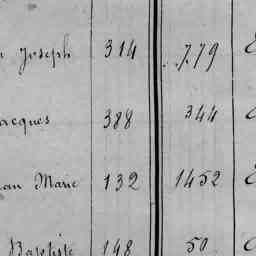 Joseph 314 779
acques 388 344
an Marie 132 1452
Baptiste 148 50